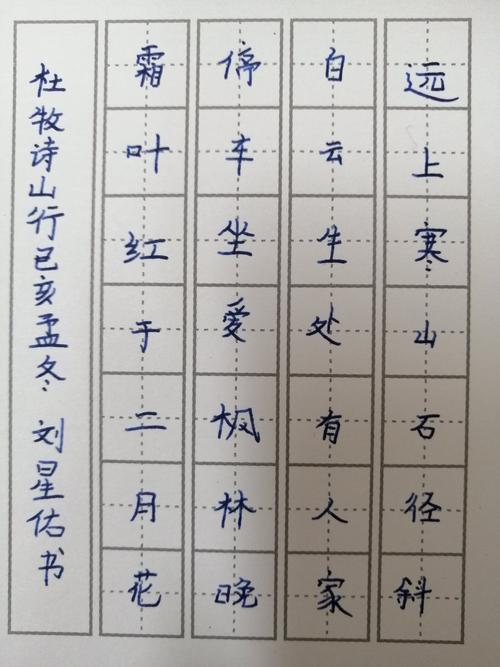 远上寒山石径斜
白云生处有人家
停车坐爱枫林晚
霜叶红于二月花
杜牧诗山行己亥孟冬 刘星佑书